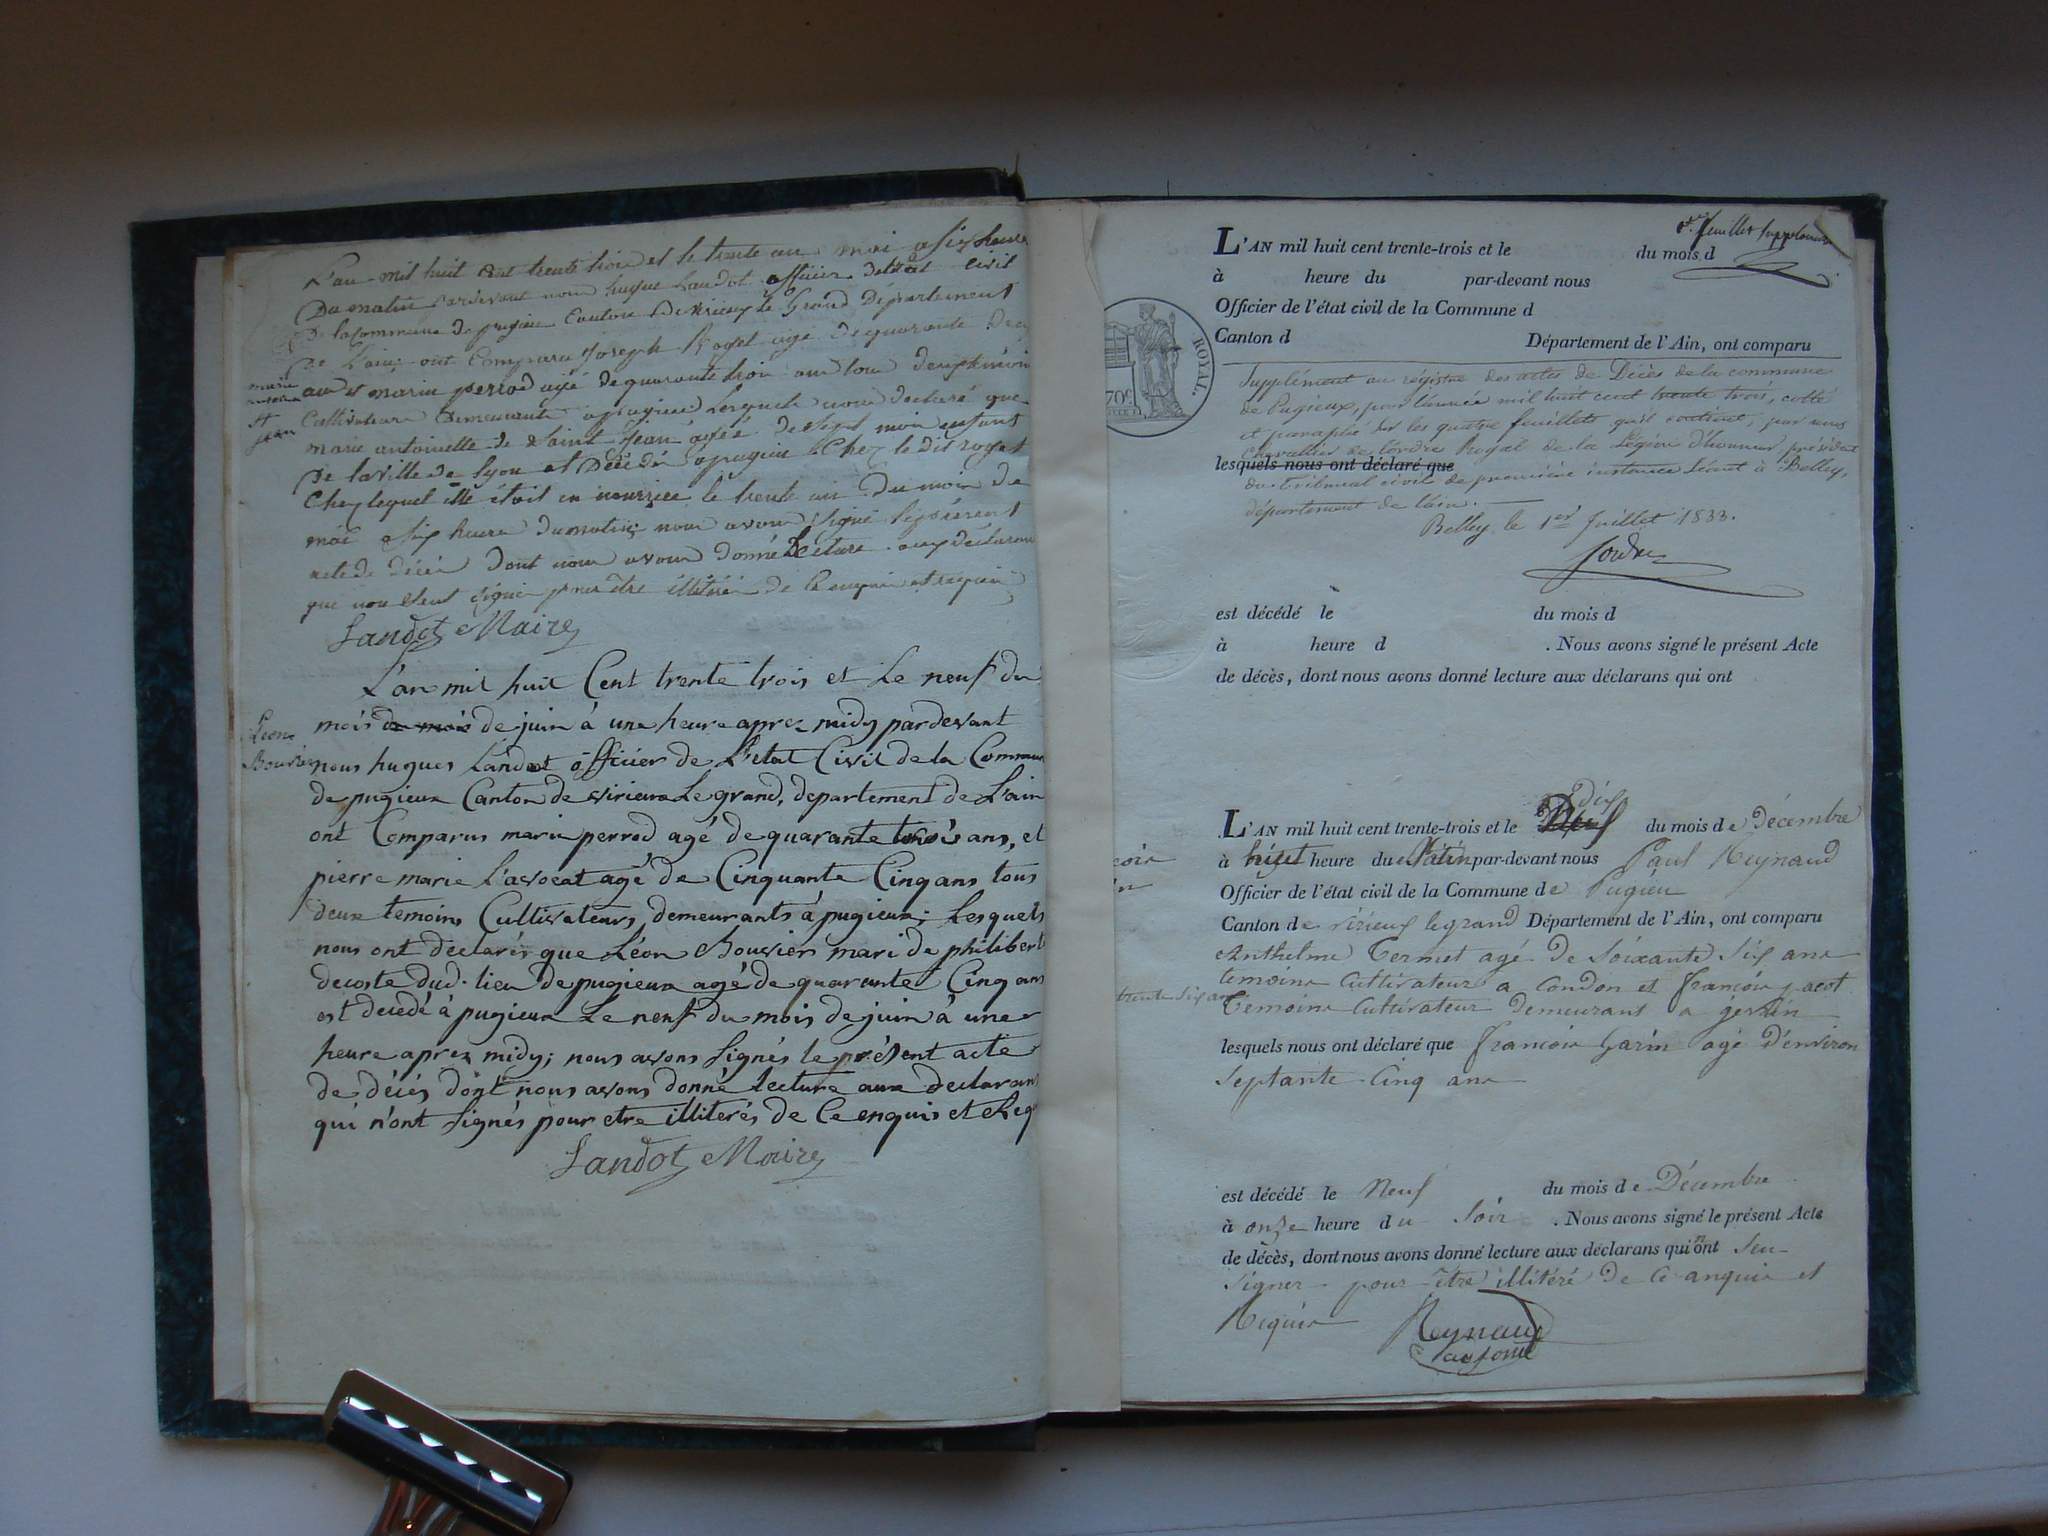 L'an mil huit cent trente trois et le trente un mai a six heures
Du matin pardevant nous hugue Landot officier de l'état civil
De la Commune de pugieu Canton De virieux le Grand Département
De L'ain; ont Comparu Joseph Roget agé de quarante deux
ans et marin perrod agé de quarante trois ans tous deux témoin
marie
antoine
St
jean
Cultivateurs Demeurants a pugieu Lesquels nous déclaré que
marie antoinette de Saint Jean agée de Sept mois enfant
De la ville de Lyon est Décédée a pugieu Chez le dit roget
Chez lequel elle était en nourrice le trente un Du mois de
mai a six heure Du matin; nous avons signé le présent
acte de décès Dont nous avons donné Lecture aux déclarans
que nont seut signer pour être illitérés de Ce enquis et requis
Landot Maire
L'an mil huit Cent trente trois et Le neuf du
mois du mois de juin à une heure aprez midy pardevant
Léon
Bouvier
nous hugues Landot officier de L'etat Civil de la Commun
de pugieux Canton de virieux Le grand, departement de L'ain
ont Comparus marin perrod agé de quarante trois ans, et
pierre marie L'avocat agé de Cinquante Cinq ans tous
deux temoins Cultivateurs, demeurants à pugieux; Lesquels
nous ont declarés que Léon Bouvier mari de philiberte
decoste dud. lieu de pugieux agé de quarante Cinq ans
est decedé à pugieux Le neuf du mois de juin à une
heure aprez midy; nous avons signés le présent acte
de décés dont nous avons donné Lecture aux declarans
qui n'ont signés pour etre illiterés de Ce enquis et Req
Landot Maire
feuillet supplémre
L'AN mil huit cent trente-trois et le du mois d
à heure du par-devant nous
Officier de l'état civil de la Commune d
Canton d Département de l'Ain, ont comparu
ROYAL.
70c.
Supplément au régistre des actes de Décès de la commune
de Pugieux, pour l'année mil huit cent trente trois, cotté
et paraphé sur les quatre feuillets qu'il contient, par nous
Chevalier de l'ordre Royal de la Légion d'honneur président
lesquels nous ont déclaré que
du Tribunal civil de première instance séant à Belley,
département de l'ain.
Belley le 1er Juillet 1833.
est décédé le du mois d
à heure d . Nous avons signé le présent Acte
de décès, dont nous avons donné lecture aux déclarans qui ont
dix
L'AN mil huit cent trente-trois et le Neuf du mois de Décembre
à huit heure du Matin par-devant nous Paul Reynaud
Officier de l'état civil de la Commune de Pugieu
Canton de virieux legrand Département de l'Ain, ont comparu
Anthelme Termet agé De Soixante Six ans
temoins Cultivateur a Condon et françois jacot
trente six ans
Témoins Cultivateur Demeurant a
lesquels nous ont déclaré que françois Garin agé D'environ
Septante Cinq ans
est décédé le Neuf du mois de Décembre
à onze heure du Soir . Nous avons signé le présent Acte
de décès, dont nous avons donné lecture aux déclarans qui n'ont Seu
Signer pour être illitéré De Ce anquis et
Requis
Reynaud
adjoint